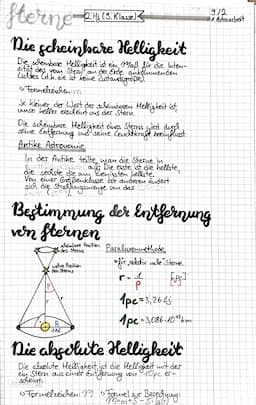 Sterne
2. Hj (9. Klasse)
9/2
Die scheinbare Helligkeit
Die scheinbare Helligkeit ist ein Maß für die Inten-
sität des vom Stern auf der Erde ankommenden
Lichtes (d.h. sie ist keine Zustandsgröße).
Formelzeichen: m
Je kleiner der Wert der scheinbaren Helligkeit ist,
umso heller erscheint uns der Stern.
Die scheinbare Helligkeit eines Sterns wird durch
seine Entfernung und seine Leuchtkraft beeinflusst.
Antike Astronomie
In der Antike teilte man die Sterne in
auf. Die erste ist die hellste,
die sechste die am wenigsten hellste.
Von einer Größenklasse zur anderen ändert
sich die Strahlungsenergie um das
Bestimmung der Entfernung
von Sternen
scheinbare Position
des Sterns
Parallaxenmethode
für relativ nahe Sterne
wahre Position
des Sterns
r = 1/p [pc]
p
r
1pc = 3,26 Lj
1pc = 3,086·10¹³ km
Die absolute Helligkeit
Die absolute Helligkeit ist die Helligkeit mit der
ein Stern aus einer Entfernung von 10pc er-
scheint.
Formelzeichen: M
Formel zur Berechnung: